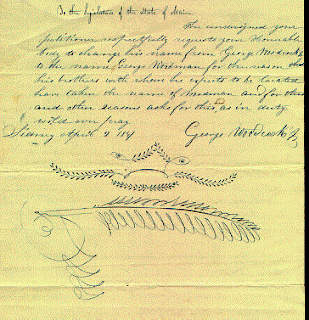 To the Legislature of the State of Maine
The undersigned your
petitioner respectfully requests your Honorable
body to change his name from George Woodcock Jr
to the name George Woodman for the reason that
his brothers with whom he expects to be located
have taken the name of Woodman and for this
and other reasons asks for this as in duty
will ever pray
April 2 1841
George Woodcock Jr